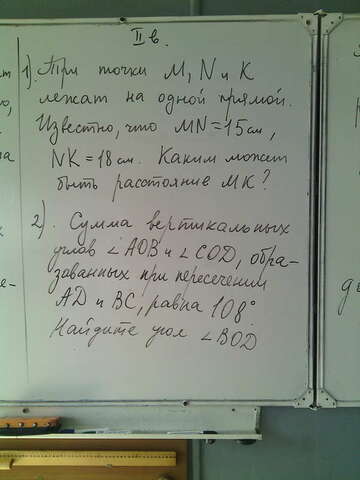 II в.
1). Три точки M, N и K
лежат на одной прямой.
Известно, что MN = 15 см,
NK = 18 см. Каким может
быть расстояние MK?
2). Сумма вертикальных
углов ∠AOB и ∠COD, обра-
зованных при пересечении
AD и BC, равна 108°
Найдите угол ∠BOD